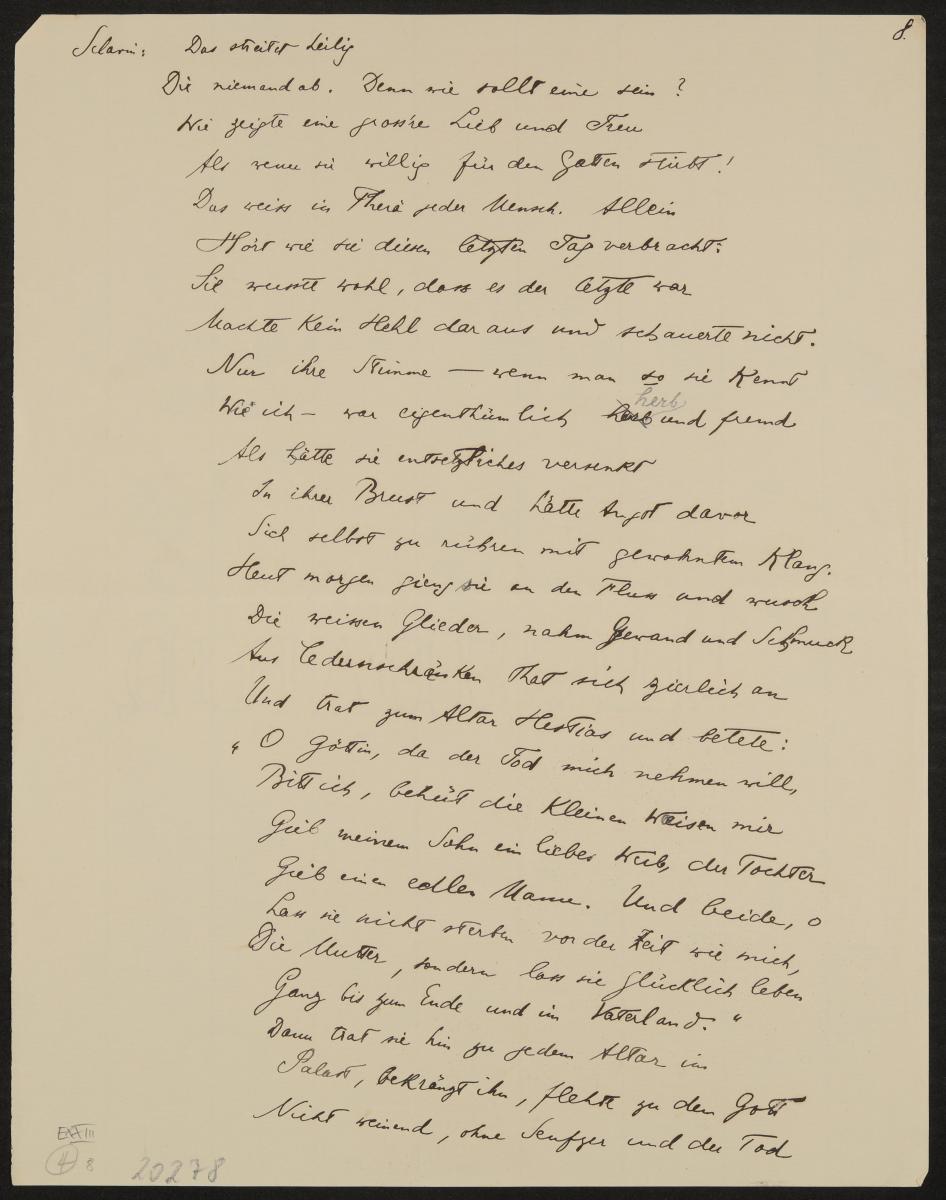 8.
Sclavin: Das streitet heilig
Dir niemand ab. Denn wie sollt eine sein?
Wie zeigte eine gross're Lieb und Treu
Als wenn sie willig für den Gatten stirbt!
Das weiss in Pherä jeder Mensch. Allein
Hört wie sie diesen letzten Tag verbracht:
Sie wusste wohl, dass es der letzte war
Machte kein Hehl daraus und schauerte nicht.
Nur ihre Stimme — wenn man so sie kennt
herb
Wie ich — war eigenthümlich herb und fremd
Als hätte sie entsetzliches versenkt
In ihrer Brust und hätte Angst davor
Sich selbst zu rühren mit gewohntem Klang.
Heut morgen gieng sie an den Fluss und wusch
Die weissen Glieder, nahm Gewand und Schmuck
Aus Cedernschränken that sich zierlich an
Und trat zum Altar Hestias und betete:
„O Göttin, da der Tod mich nehmen will,
Bitt ich, behüt die kleinen Weisen mir
Gieb meinem Sohn ein liebes Weib, der Tochter
Gieb einen edlen Mann. Und beide, o
Lass sie nicht sterben vor der Zeit wie mich,
Die Mutter, sondern lass sie glücklich leben
Ganz bis zum Ende und im Vaterland."
Dann trat sie hin zu jedem Altar im
Palast, bekränzt ihn, flehte zu dem Gott
Nicht weinend, ohne Seufzer und der Tod
E III
4 8
20278